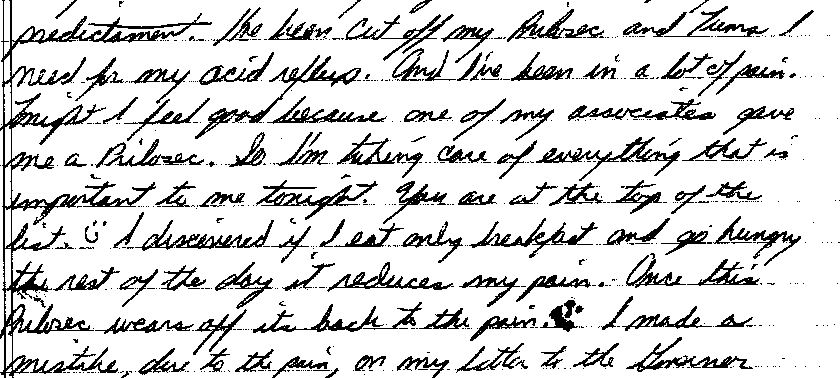 predictament. I've been cut off my Prilosec and Tums I
need for my acid reflux. And I've been in a lot of pain.
Tonight I feel good because one of my associates gave
me a Prilosec. So I'm taking care of everything that is
important to me tonight. You are at the top of the
list. I discovered if I eat only breakfast and go hungry
the rest of the day it reduces my pain. Once this
Prilosec wears off its back to the pain. I made a
mistake, due to the pain, on my letter to the Governor